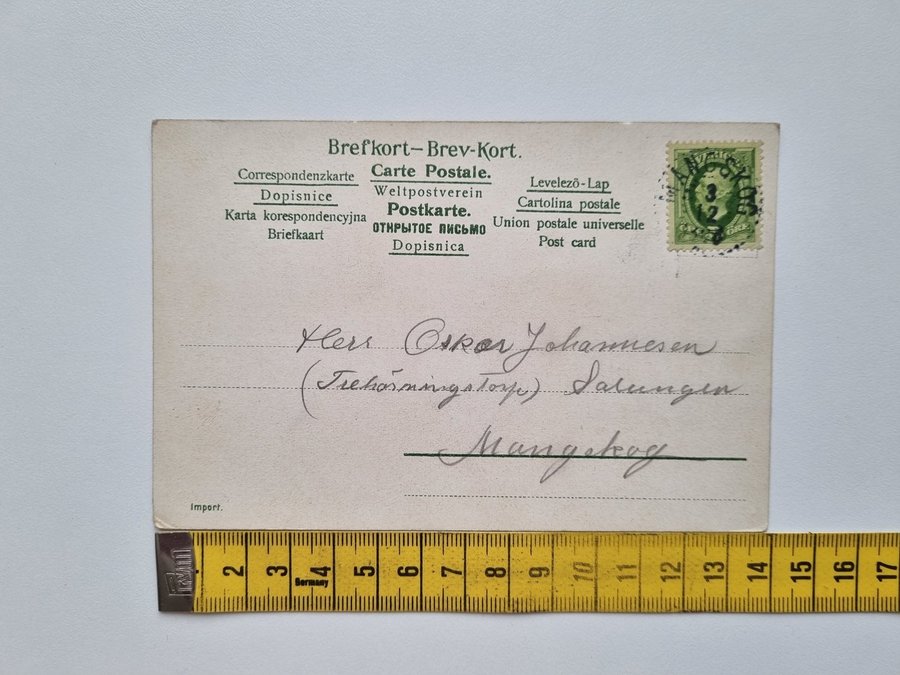 Brefkort–Brev-Kort.
Correspondenzkarte
Dopisnice
Karta korespondencyjna
Briefkaart
Carte Postale.
Weltpostverein
Postkarte.
ОТКРЫТОЕ ПИСЬМО
Dopisnica
Levelező-Lap
Cartolina postale
Union postale universelle
Post card
MANGSKOG
3
12
Herr Oskar Johannesen
(Trehörningstorp) Salungen
Mangskog
Import.
2 3 4 5 6 7 8 9 10 11 12 13 14 15 16 17
Germany